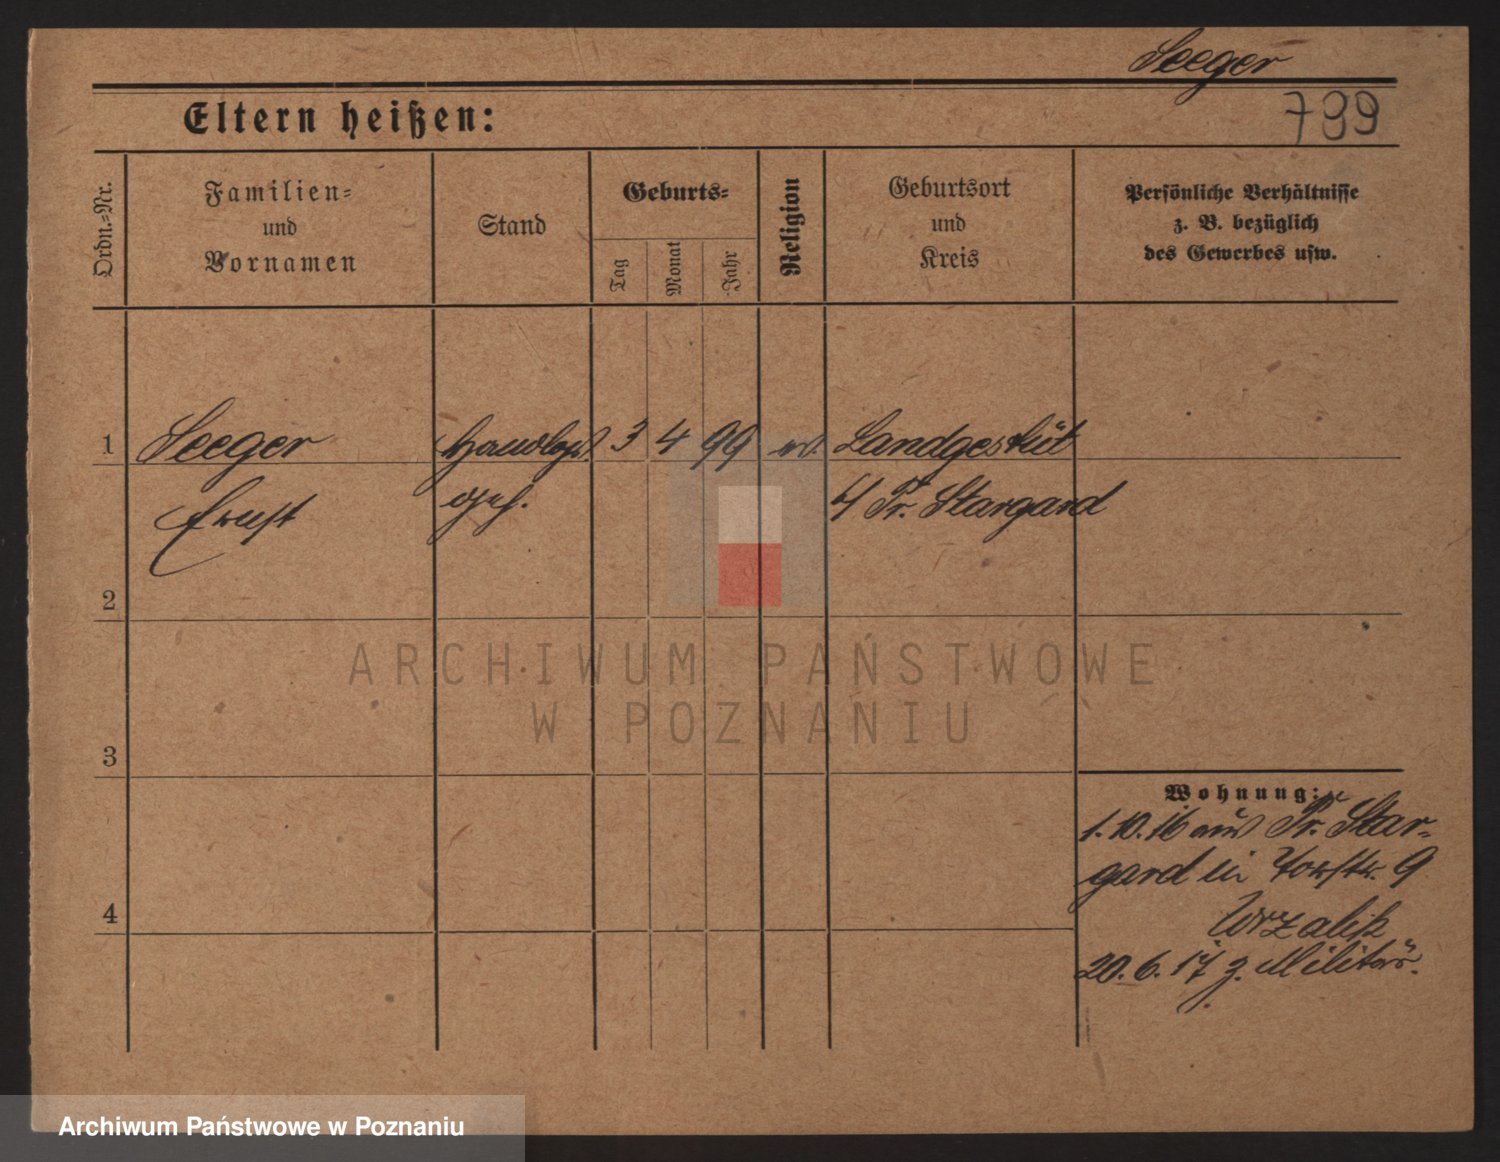 Seeger
789
Eltern heißen:
Ordn.-Nr.
Familien-
und
Vornamen
Stand
Geburts-
Tag
Monat
Jahr
Religion
Geburtsort
und
Kreis
Persönliche Verhältnisse
z. B. bezüglich
des Gewerbes usw.
1
Seeger
Handlgs.
3
4
99
ev.
Landgestüt
Ernst
geh.
Pr. Stargard
2
ARCHIWUM PAŃSTWOWE
W POZNANIU
3
Wohnung:
1.10.16 aus Pr. Star-
gard in Yorkstr. 9
Wrzalik
20.6.17 z. Militär.
4
Archiwum Państwowe w Poznaniu